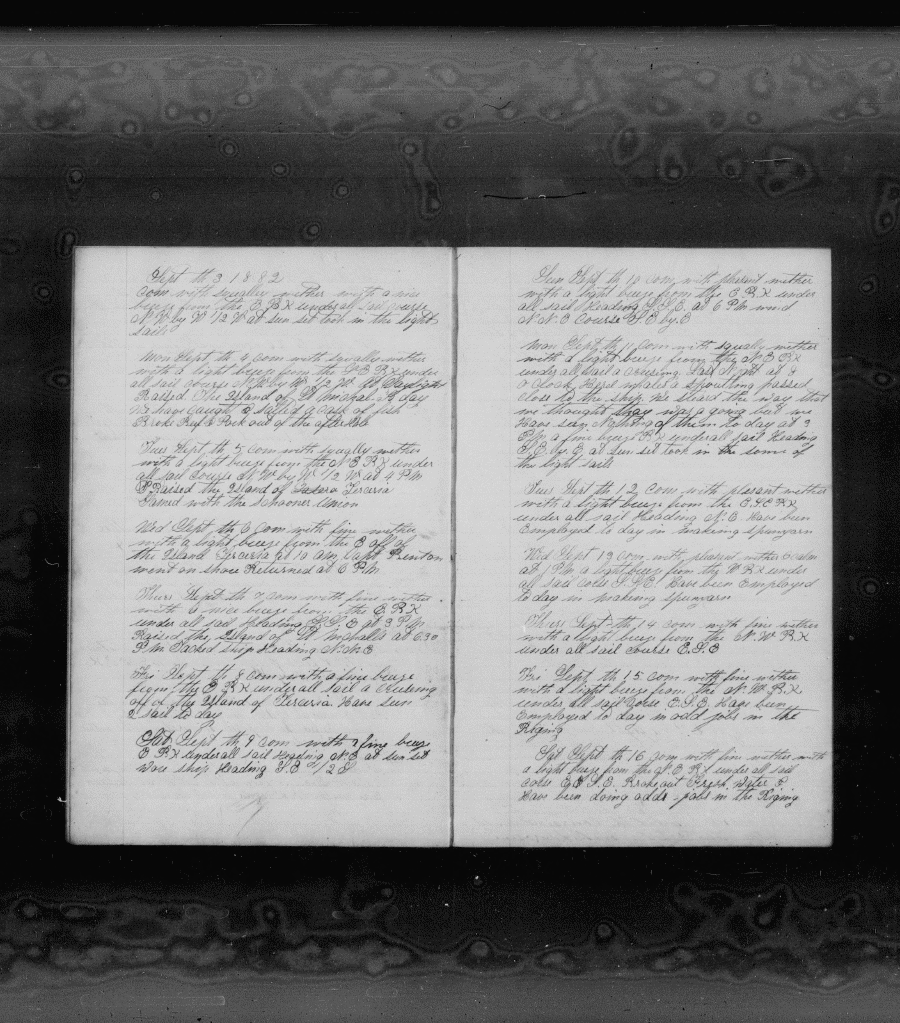 Sept th 3 1882
Com with squally wether with a nice
breeze from the E B X under all sail course
N W by W 1/2 W at sun set took in the light
sails
Mon Sept th 4 com with squally wether
with a light breeze from the S E B X under
all sail course N W by W 1/2 W at Daylight
Raised the Island of St Micheal. A day
we have caught & salted a cask of fish
Broke Beef & Pork out of the afterhole
Tues Sept th 5 com with squally wether
with a light breeze from the N E B X under
all sail course N W by W 1/2 W at 4 P m
Raised the Island of Terceria
Gamed with the schooner Union
Wed Sept th 6 Com with fine wether
with a light breeze from the E off of
the Island Terceria at 10 Am Capt
went on shore Returned at 6 P m
Thurs Sept th 7 com with fine wether
with a nice breeze from the E B X
under all sail Heading S. S. E at 3 P m
Raised the Island of St Micheals at 630
P m Tacked ship Heading N. N E
Fri Sept th 8 com with a fine breeze
from the E B X under all sail a Cruising
off of the Island of Terceria. Have seen
2 sail to day
Sat Sept th 9 com with a fine breeze
E B X under all sail Heading N. E at sun set
Wore ship Heading S E 1/2 S
Sun Sept th 10 com with plesent wether
with a light breeze from the E. B X under
all sail Heading S. S. E. at 6 P m wind
N N E Course S. E by E
Mon Sept th 11 com with squally wether
with a light breeze from the N E B X
under all sail a cruising. Last Night at
O clock Heard whales a spouting passed
close to the ship. We steard the way that
we thought thay was a going but we
Have seen nothing of them to day at 3
P m a fine breeze B X under all sail Heading
S. E. by. E. at sun set took in the some of
the light sails
Tues Sept th 12 Com with plesant wether
with a light breeze from the E. S. E B X
under all sail Heading N. E Have been
Employed to day in making spunyarn
Wed Sept 13 com with plesent wether & calm
at 1 P m a light breeze from the W B X under
all sail cors S. S E Have been Employed
to day in making spunyarn
Thurs Sept th 14 com with fine wether
with a light breeze from the N. W B X
under all sail course E. S. E
Fri Sept th 15 com with fine wether
with a light breeze from the N. W. B X
under all sail corse E. S. E. Have been
Employed to day in odd jobs in the
Riging
Sat Sept th 16 com with fine wether with
a light breeze from the N. E B X under all sail
cors E. S. E. Broke out Fresh Water &
Have been doing odds jobs in the Riging